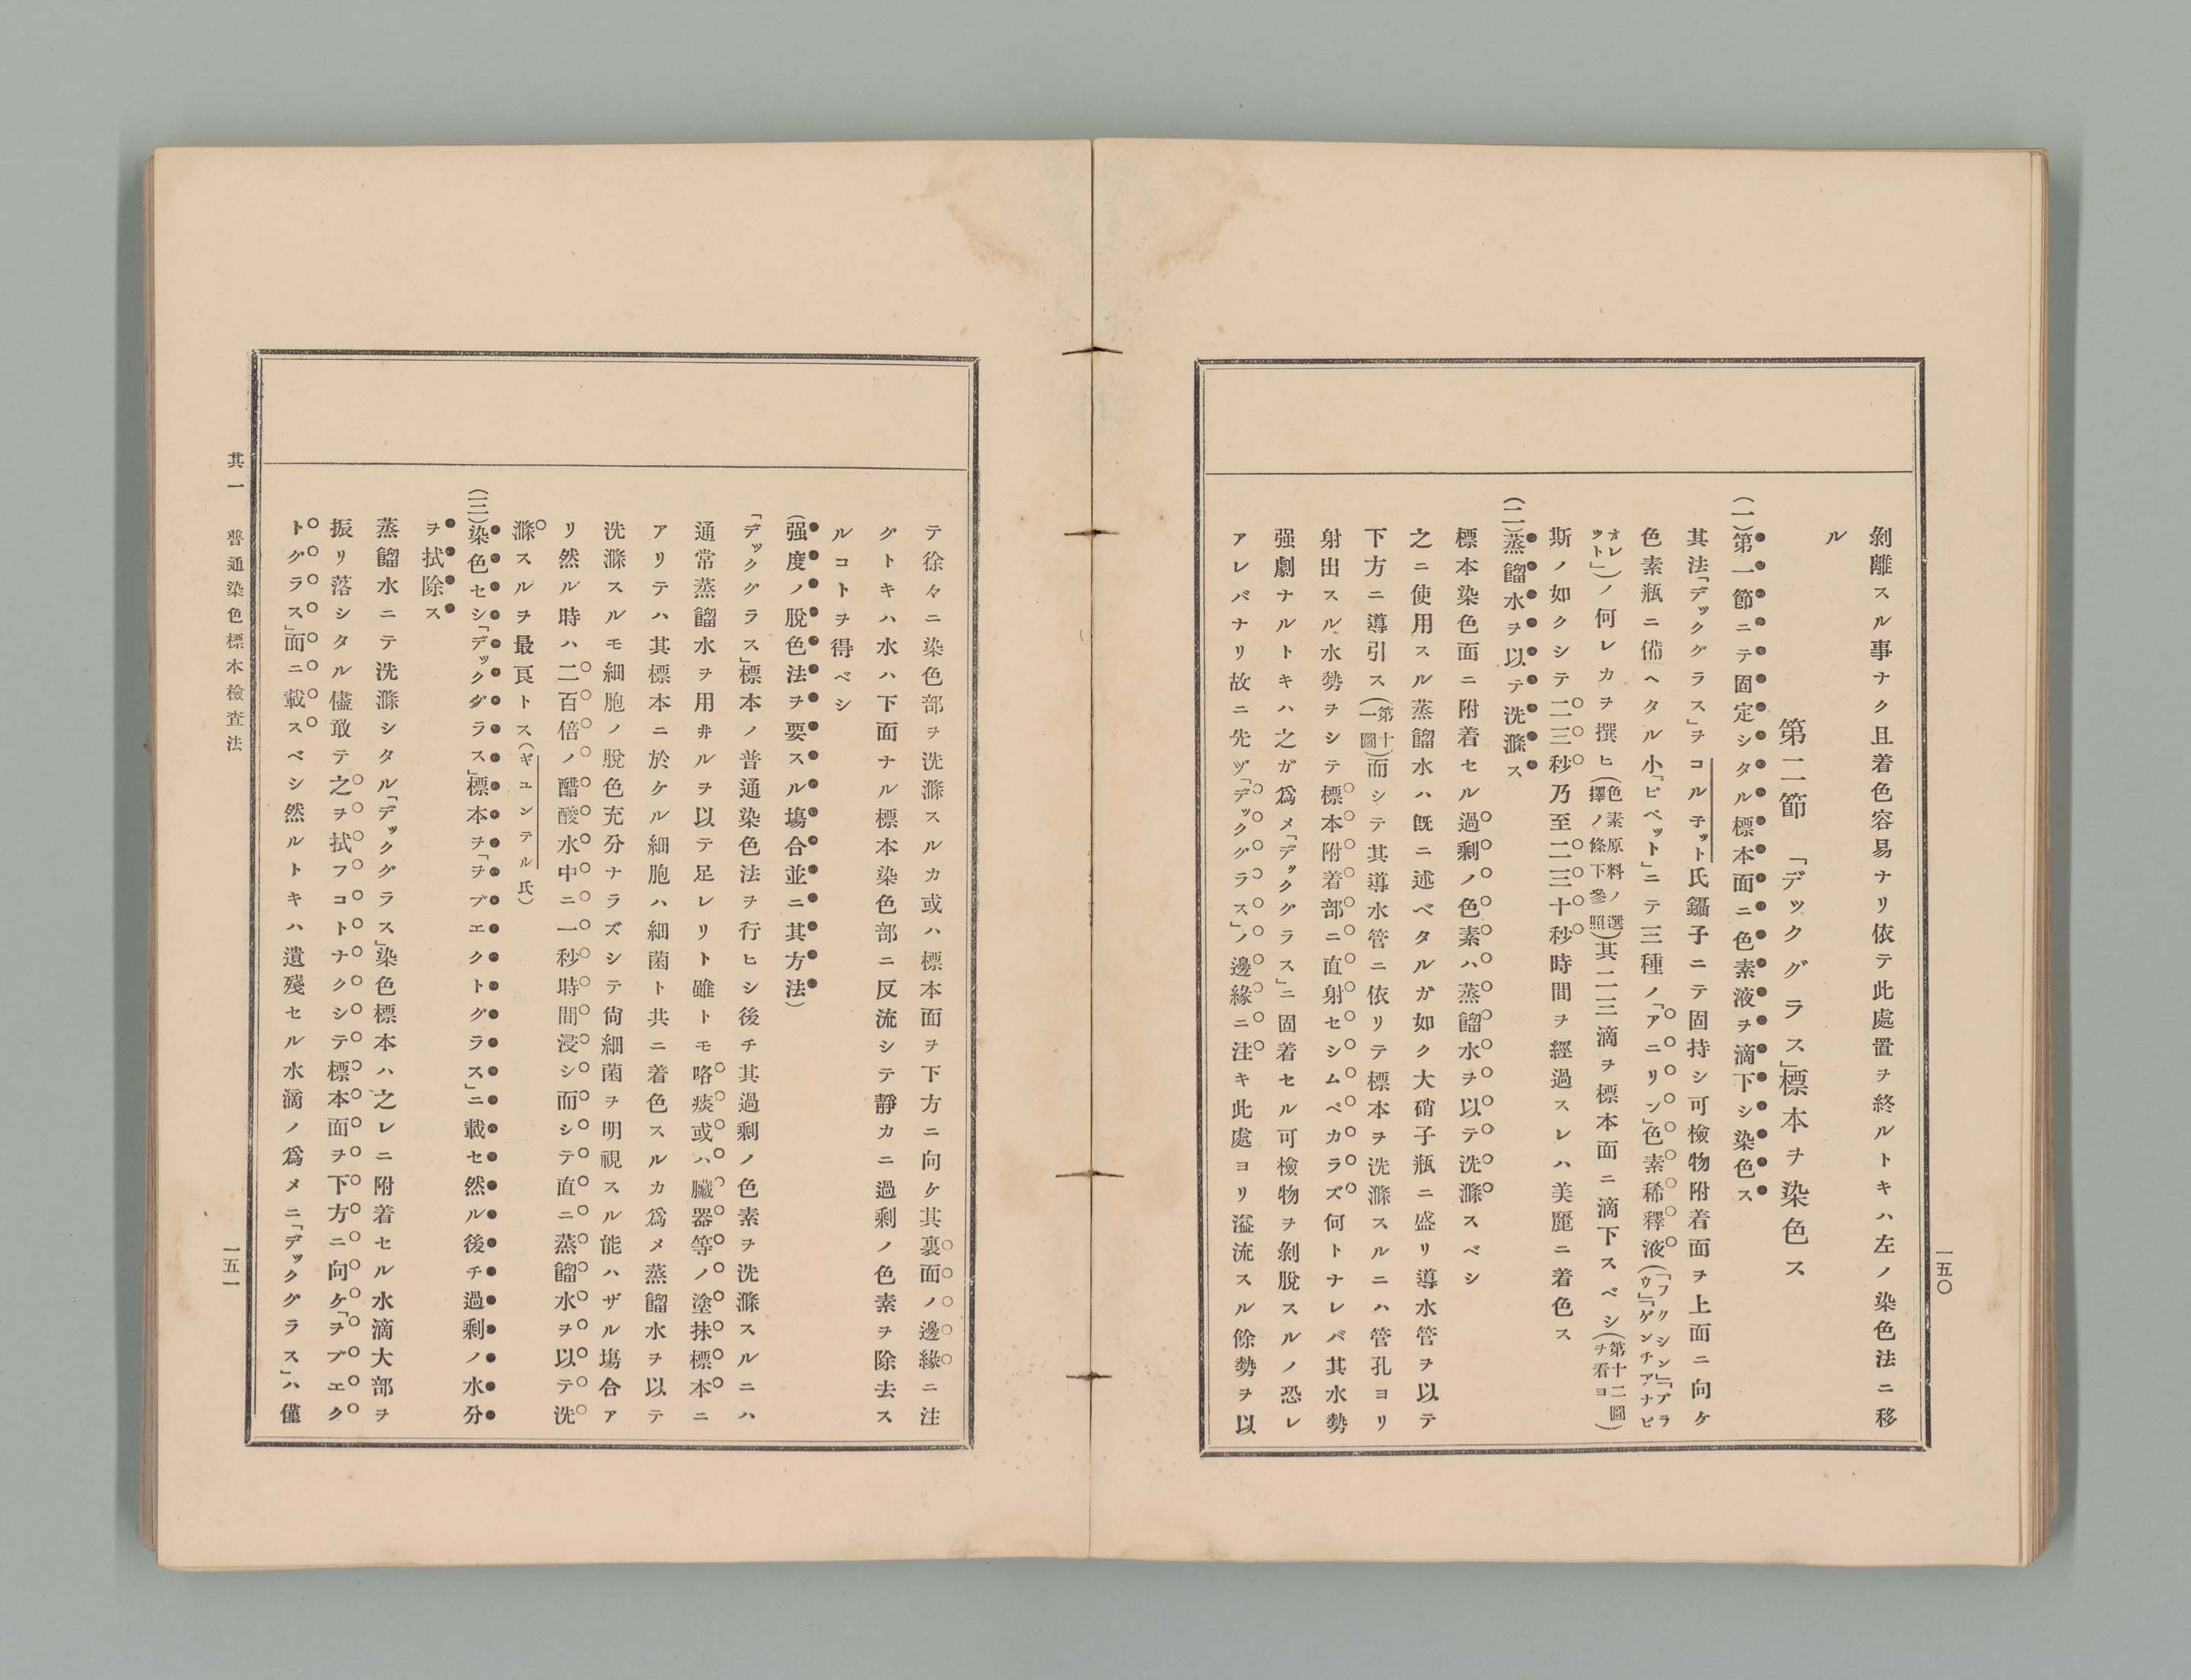 剝離スル事ナク且着色容易ナリ依テ此處置ヲ終ルトキハ左ノ染色法ニ移
ル
第二節　「デックグラス」標本ヲ染色ス
(一)第一節ニテ固定シタル標本面ニ色素液ヲ滴下シ染色ス
其法「デックグラス」ヲコル子ット氏鑷子ニテ固持シ可檢物附着面ヲ上面ニ向ケ
色素瓶ニ備ヘタル小「ピペット」ニテ三種ノ「アニリン」色素稀釋液(「フクシン」「ブラウ」「ゲンチアナピ
オレット」)ノ何レカヲ撰ヒ(色素原料ノ選擇ノ條下參照)其二三滴ヲ標本面ニ滴下スベシ(第十二圖ヲ看ヨ)
斯ノ如クシテ二三秒乃至二三十秒時間ヲ經過スレハ美麗ニ着色ス
(二)蒸餾水ヲ以テ洗滌ス
標本染色面ニ附着セル過剩ノ色素ハ蒸餾水ヲ以テ洗滌スベシ
之ニ使用スル蒸餾水ハ既ニ述ベタルガ如ク大硝子瓶ニ盛リ導水管ヲ以テ
下方ニ導引ス(第十一圖)而シテ其導水管ニ依リテ標本ヲ洗滌スルニハ管孔ヨリ
射出スル水勢ヲシテ標本附着部ニ直射セシムベカラズ何トナレバ其水勢
强劇ナルトキハ之ガ爲メ「デックグラス」ニ固着セル可檢物ヲ剝脫スルノ恐レ
アレバナリ故ニ先ヅ「デックグラス」ノ邊緣ニ注キ此處ヨリ溢流スル餘勢ヲ以
一五〇
テ徐々ニ染色部ヲ洗滌スルカ或ハ標本面ヲ下方ニ向ケ其裏面ノ邊緣ニ注
グトキハ水ハ下面ナル標本染色部ニ反流シテ靜カニ過剩ノ色素ヲ除去ス
ルコトヲ得ベシ
(强度ノ脫色法ヲ要スル塲合並ニ其方法)
「デックグラス」標本ノ普通染色法ヲ行ヒシ後チ其過剩ノ色素ヲ洗滌スルニハ
通常蒸餾水ヲ用井ルヲ以テ足レリト雖トモ咯痰或ハ臟器等ノ塗抹標本ニ
アリテハ其標本ニ於ケル細胞ハ細菌ト共ニ着色スルカ爲メ蒸餾水ヲ以テ
洗滌スルモ細胞ノ脫色充分ナラズシテ尙細菌ヲ明視スル能ハザル塲合ア
リ然ル時ハ二百倍ノ醋酸水中ニ一秒時間浸シ而シテ直ニ蒸餾水ヲ以テ洗
滌スルヲ最良トス(ギユンテル氏)
(三)染色セシ「デックグラス」標本ヲ「ヲブエクトグラス」ニ載セ然ル後チ過剩ノ水分
ヲ拭除ス
蒸餾水ニテ洗滌シタル「デックグラス」染色標本ハ之レニ附着セル水滴大部ヲ
振リ落シタル儘敢テ之ヲ拭フコトナクシテ標本面ヲ下方ニ向ケ「ヲブエク
トグラス」面ニ載スベシ然ルトキハ遺殘セル水滴ノ爲メニ「デックグラス」ハ僅
其一　普通染色標本檢查法
一五一